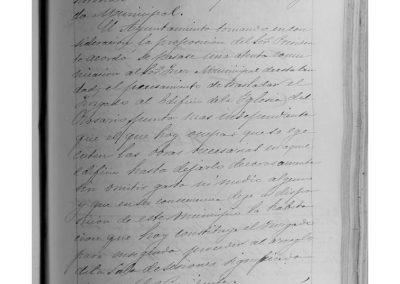 da Municipal.
El Ayuntamiento tomando en con
sideración la proposición del Sor Presiden
te acordó se pasase una atenta comu
nicación al Sor Juez Municipal de esta lo
dad, el pensamiento de trasladar el
Juzgado al Edificio de la Iglesia del
Rosario punto mas independiente
que el que hoy ocupa, que se eje
cuten las obras necesarias en aquel
edificio hasta dejarlo decorosamente
sin omitir gasto ni medio alguno
y que en su consecuencia deje a dispo
sicion de este Municipio la habita
cion que hoy constituye el Juzgado
para enseguida proceder al arreglo
de la Sala de sesiones